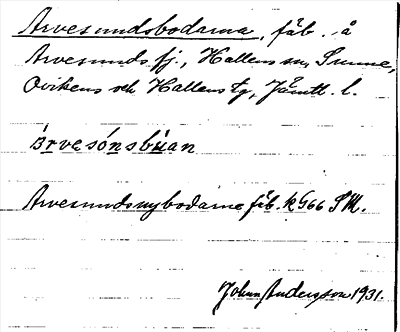 Arvesundsbodarna, fäb. å
Arvesunds fj., Hallens sn, Sunne,
Ovikens och Hallens tg, Jämtl. l.
ärvesónsbu̇an
Arvesundsnybodarne fäb. k G66 SM.
Johan Andersson 1931.